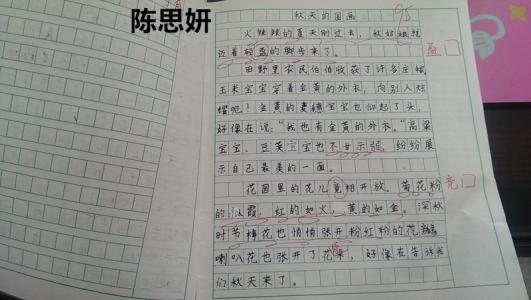 陈思妍
95
秋天的图画
火辣辣的夏天刚过去，秋姑娘就
迈着轻盈的脚步来了。
盈
田野里农民伯伯收获了许多庄稼，
玉米宝宝穿着金黄的外衣，向别人炫
耀呢！金黄的麦穗宝宝也仰起了头，
好像在说："我也有金黄的外衣。"高粱
宝宝、豆荚宝宝也不甘示弱，纷纷展
示自己最美的一面。
花园里的花儿竟相开放。菊花粉
竞
的似霞，红的如火，黄的如金。深秋
时节梅花也悄悄张开粉红粉的花瓣
喇叭花也张开了花，好像在告诉我
们秋天来了。